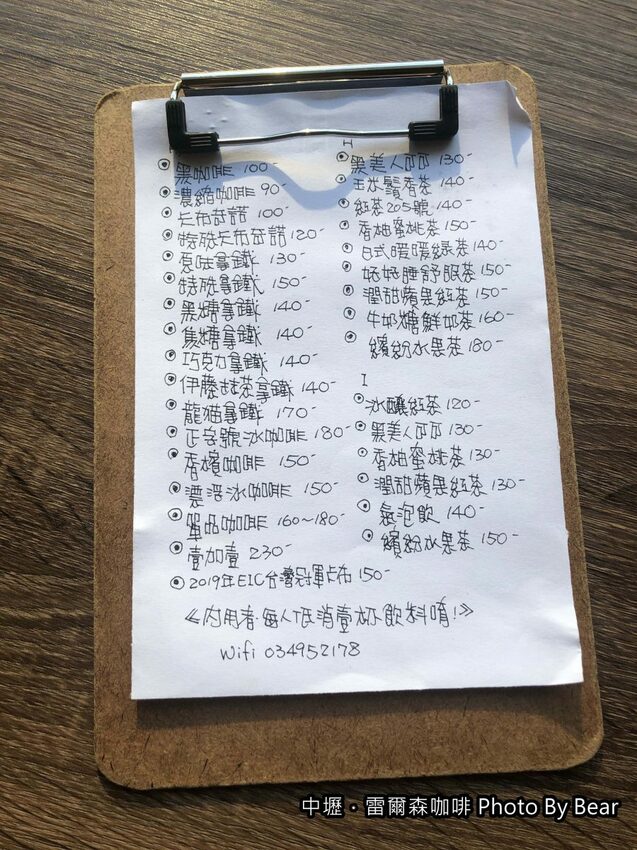 黑咖啡 100-
濃縮咖啡 90-
卡布奇諾 100-
特殊卡布奇諾 120-
原味拿鐵 130-
特殊拿鐵 150-
黑糖拿鐵 140-
焦糖拿鐵 140-
巧克力拿鐵 140-
伊藤抹茶拿鐵 140-
龍貓拿鐵 170-
正宗號冰咖啡 180-
香檳咖啡 150-
漂浮冰咖啡 150-
單品咖啡 160~180-
壹加壹 230-
2019年EIC台灣冠軍卡布 150-
H
黑美人 130-
玉米鬚香茶 140-
紅茶205號 140-
香柚蜜桃茶 150-
日式暖暖綠茶 140-
好好睡舒眠茶 150-
潤甜蘋果紅茶 150-
牛奶糖鮮奶茶 160-
繽紛水果茶 180-
I
冰釀紅茶 120-
黑美人 130-
香柚蜜桃茶 130-
潤甜蘋果紅茶 130-
氣泡飲 140-
繽紛水果茶 150-
≪內用者每人低消壹杯飲料唷!≫
Wifi 034952178
中壢・雷爾森咖啡 Photo By Bear